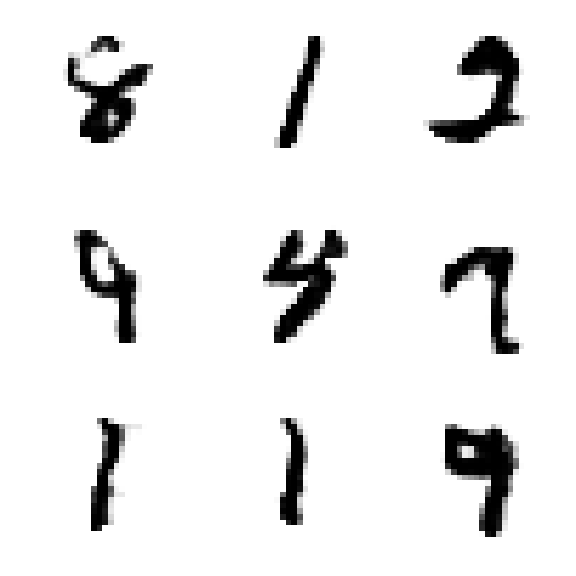 8 1 2
9 4 7
1 1 9